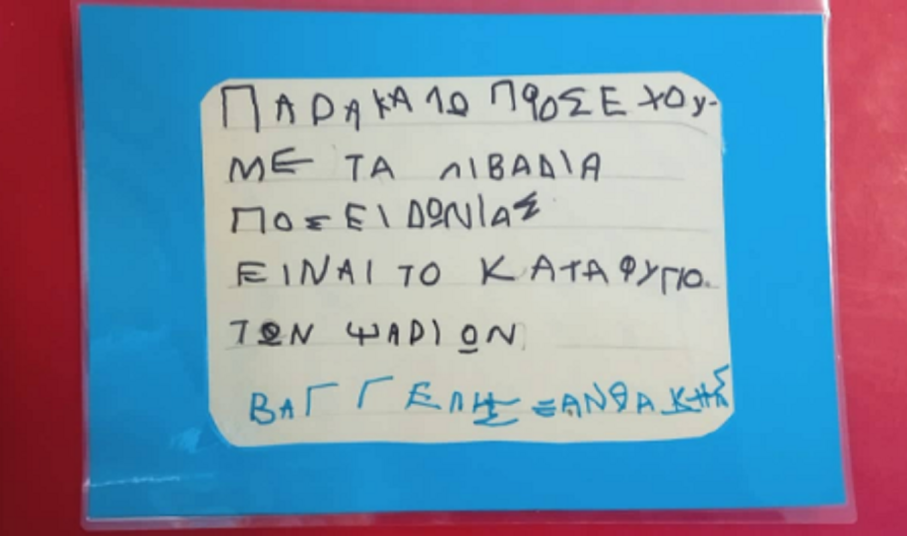 ΠΑΡΑΚΑΛΩ ΠΡΟΣΕΧΟΥ-
ΜΕ ΤΑ ΛΙΒΑΔΙΑ
ΠΟΣΕΙΔΩΝΙΑΣ
ΕΙΝΑΙ ΤΟ ΚΑΤΑΦΥΓΙΟ.
ΤΩΝ ΨΑΡΙΩΝ
ΒΑΓΓΕΛΗΣ ΞΑΝΘΑΚΗΣ